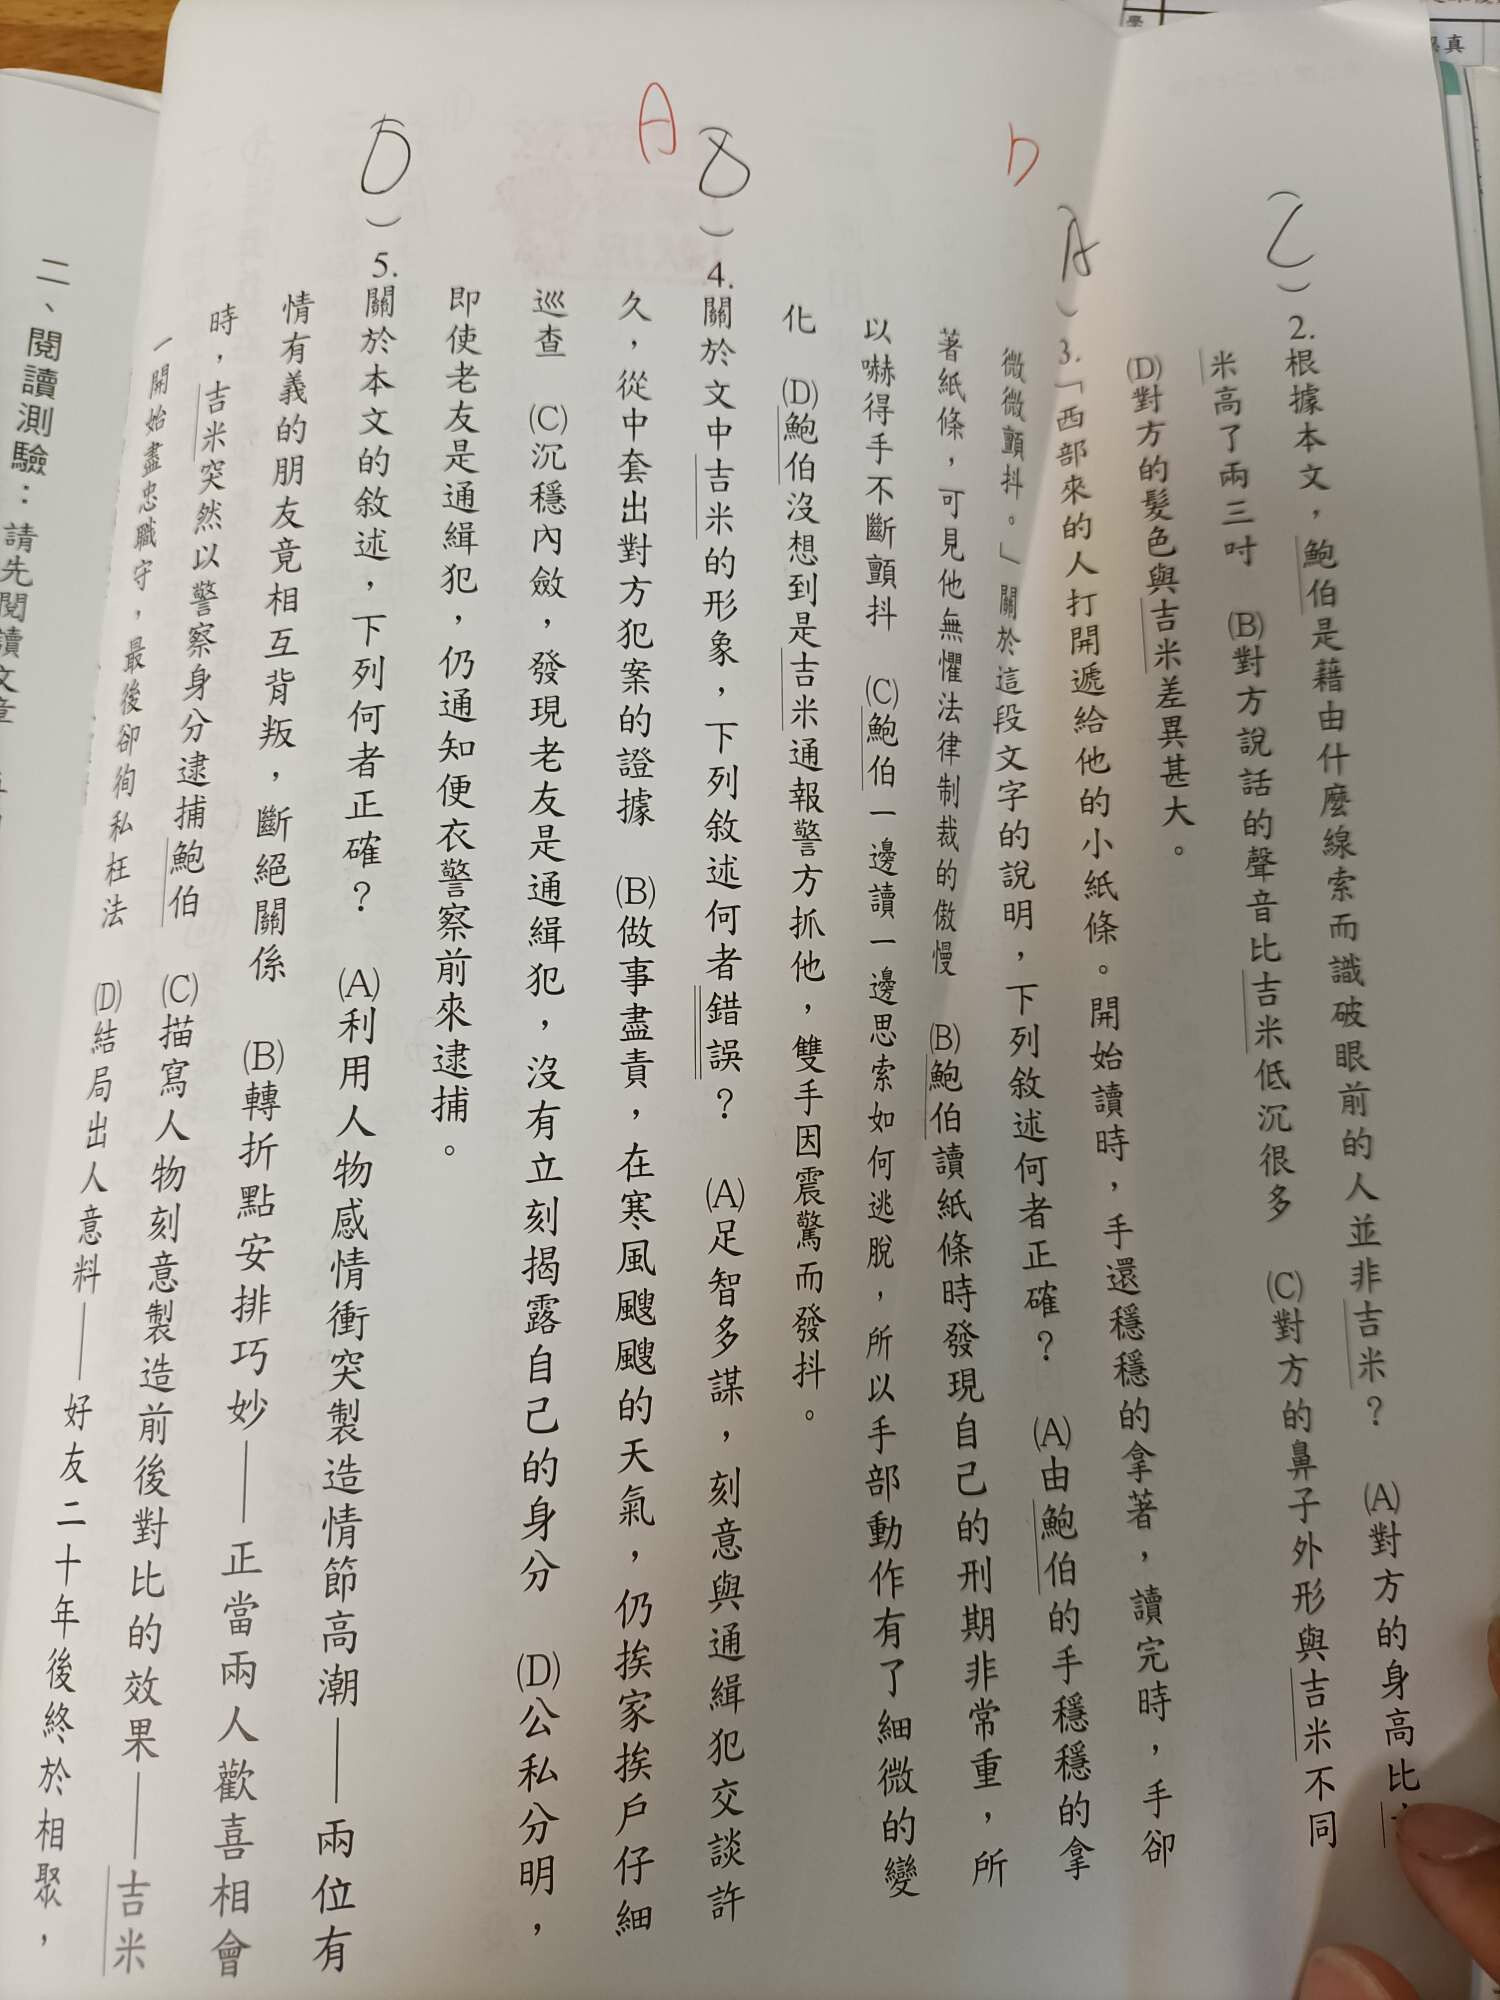 (C)2.根據本文，鮑伯是藉由什麼線索而識破眼前的人並非吉米？ (A)對方的身高比
米高了兩三吋 (B)對方說話的聲音比吉米低沉很多 (C)對方的鼻子外形與吉米不同
(D)對方的髮色與吉米差異甚大。
D
(A)3.「西部來的人打開遞給他的小紙條。開始讀時，手還穩穩的拿著，讀完時，手卻
微微顫抖。」關於這段文字的說明，下列敘述何者正確？ (A)由鮑伯的手穩穩的拿
著紙條，可見他無懼法律制裁的傲慢 (B)鮑伯讀紙條時發現自己的刑期非常重，所
以嚇得手不斷顫抖 (C)鮑伯一邊讀一邊思索如何逃脫，所以手部動作有了細微的變
化 (D)鮑伯沒想到是吉米通報警方抓他，雙手因震驚而發抖。
A
B)4.關於文中吉米的形象，下列敘述何者錯誤？ (A)足智多謀，刻意與通緝犯交談許
久，從中套出對方犯案的證據 (B)做事盡責，在寒風颼颼的天氣，仍挨家挨戶仔細
巡查 (C)沉穩內斂，發現老友是通緝犯，沒有立刻揭露自己的身分 (D)公私分明，
即使老友是通緝犯，仍通知便衣警察前來逮捕。
(D)5.關於本文的敘述，下列何者正確？ (A)利用人物感情衝突製造情節高潮——兩位有
情有義的朋友竟相互背叛，斷絕關係 (B)轉折點安排巧妙——正當兩人歡喜相會
時，吉米突然以警察身分逮捕鮑伯 (C)描寫人物刻意製造前後對比的效果——吉米
一開始盡忠職守，最後卻徇私枉法 (D)結局出人意料——好友二十年後終於相聚，
二、閱讀測驗：請先閱讀文章